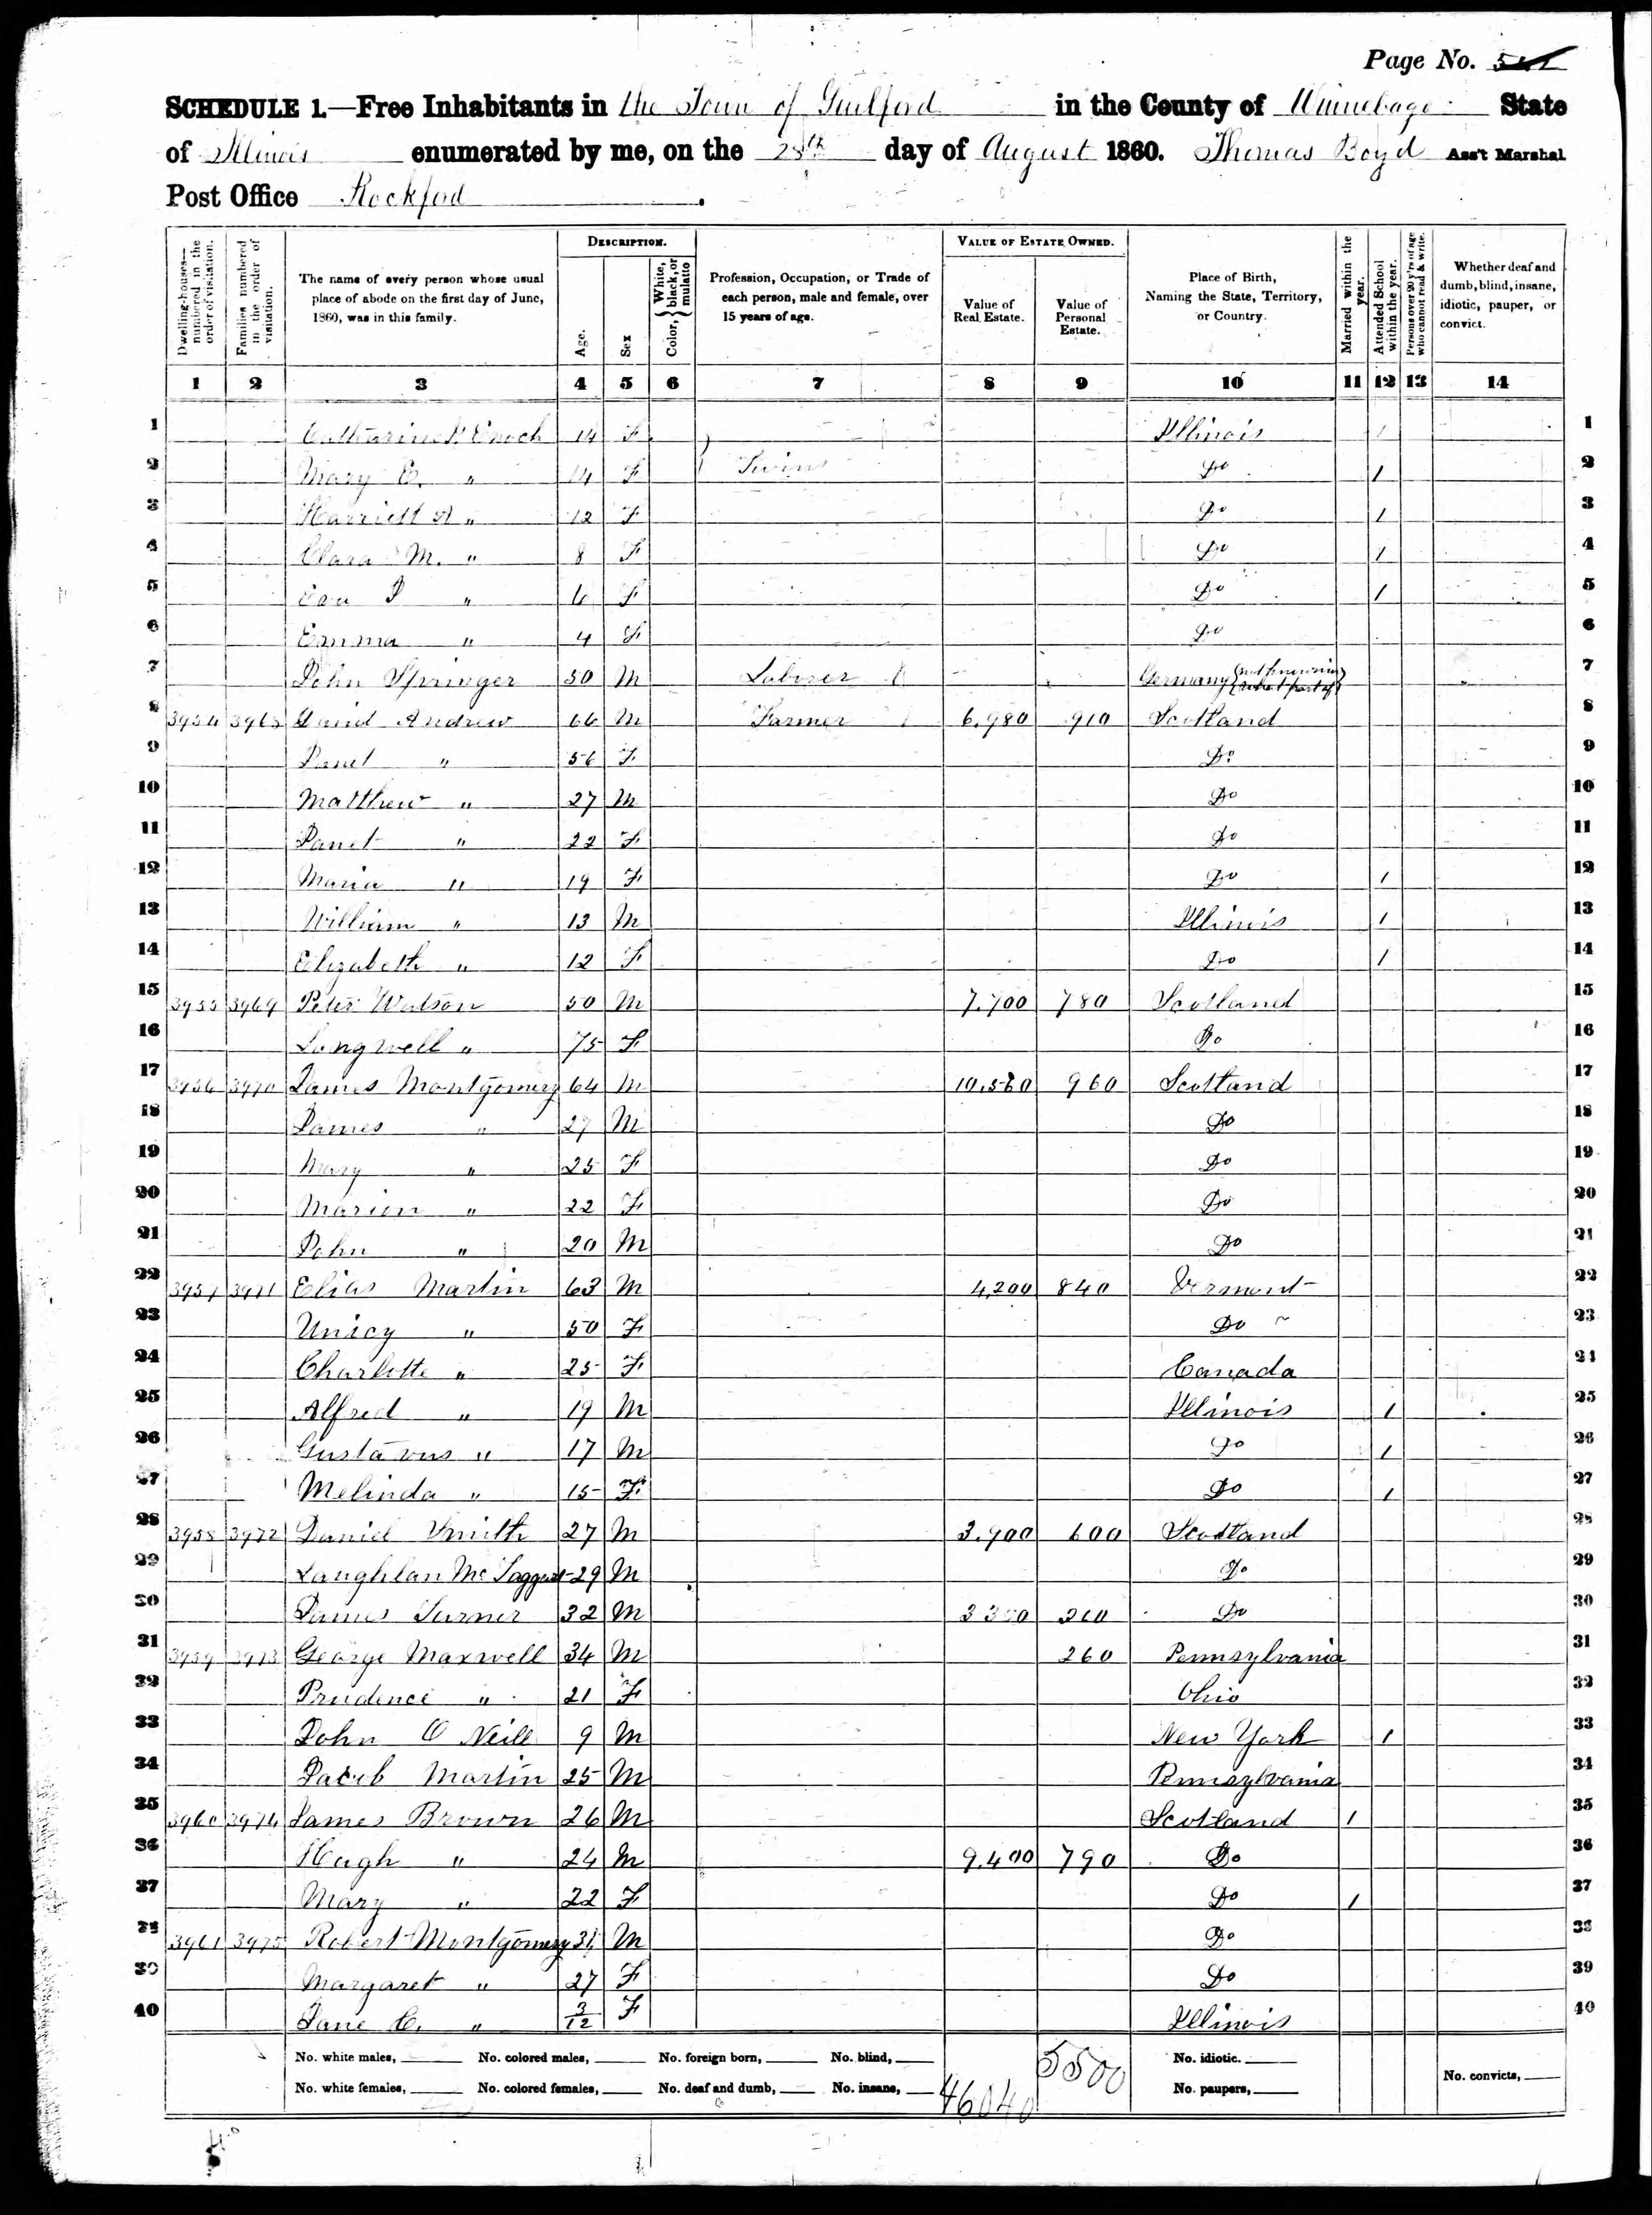 Page No.
SCHEDULE 1.—Free Inhabitants in the Town of Guilford in the County of Winnebago State
of Illinois enumerated by me, on the 28th day of August 1860. Thomas Boyd Ass't Marshal
Post Office Rockford.
Dwelling-houses—numbered in the order of visitation.
Families numbered in the order of visitation.
The name of every person whose usual place of abode on the first day of June, 1860, was in this family.
DESCRIPTION.
Age.
Sex
Color, White, black, or mulatto
Profession, Occupation, or Trade of each person, male and female, over 15 years of age.
VALUE OF ESTATE OWNED.
Value of Real Estate.
Value of Personal Estate.
Place of Birth, Naming the State, Territory, or Country.
Married within the year.
Attended School within the year.
Persons over 20 y'rs of age who cannot read & write.
Whether deaf and dumb, blind, insane, idiotic, pauper, or convict.
1 2 3 4 5 6 7 8 9 10 11 12 13 14
1 Enoch 14 F Illinois / 1
2 Mary E. " 14 F Twins Do / 2
3 Harriett A " 12 F Do / 3
4 Clara M. " 8 F Do / 4
5 " 6 F Do / 5
6 Emma " 4 F Do 6
7 John Springer 50 M Laborer Germany (not knowing what part of) 7
8 3954 3968 David Andrew 66 M Farmer 6,980 910 Scotland 8
9 Janet " 56 F Do 9
10 Matthew " 27 M Do 10
11 Janet " 22 F Do 11
12 Maria " 19 F Do / 12
13 William " 13 M Illinois / 13
14 Elizabeth " 12 F Do / 14
15 3955 3969 Peter Watson 50 M 7,700 780 Scotland 15
16 Longwell " 75 F Do 16
17 3956 3970 James Montgomery 64 M 10,560 960 Scotland 17
18 James " 27 M Do 18
19 Mary " 25 F Do 19
20 Marion " 22 F Do 20
21 John " 20 M Do 21
22 3957 3971 Elias Martin 63 M 4,200 840 Vermont 22
23 Unicy " 50 F Do 23
24 Charlotte " 25 F Canada 24
25 Alfred " 19 M Illinois / 25
26 Gustavus " 17 M Do / 26
27 Melinda " 15 F Do / 27
28 3958 3972 Daniel Smith 27 M 3,900 600 Scotland 28
29 Laughlan McTaggart 29 M Do 29
30 James Turner 32 M Do 30
31 3959 3973 George Maxwell 34 M 260 Pennsylvania 31
32 Prudence " 21 F Ohio 32
33 John O Neill 9 M New York / 33
34 Jacob Martin 25 M Pennsylvania 34
35 3960 3974 James Brown 26 M Scotland / 35
36 Hugh " 24 M 9,400 790 Do 36
37 Mary " 22 F Do / 37
38 3961 3975 Robert Montgomery 31 M Do 38
39 Margaret " 27 F Do 39
40 Jane C. " 3/12 F Illinois 40
No. white males, No. colored males, No. foreign born, No. blind, No. idiotic.
No. white females, No. colored females, No. deaf and dumb, No. insane, 46040 5500 No. paupers, No. convicts,